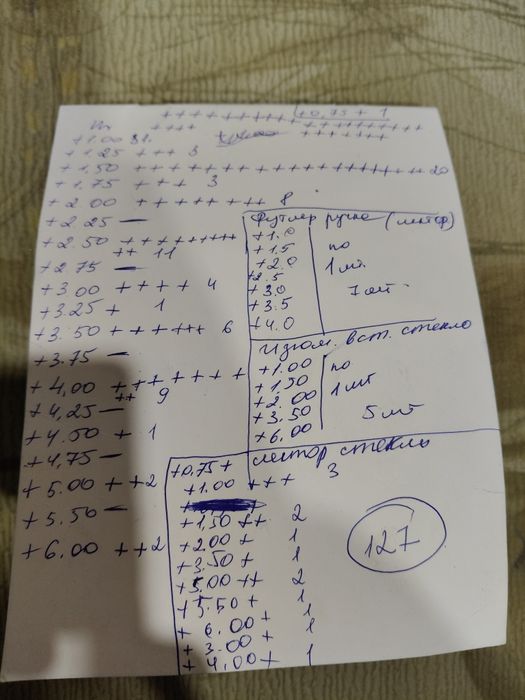 +0,75 + 1
+ + + + + + + + + +
+ + + +
+ + + + + + + + + +
+ + + + + + +
+1.00 31.
+1.25 + + + 3
+1,50 + + + + + + + + + + + + + + + + + + + + 20
+1.75 + + + 3
+2.00 + + + + + + + + 8
+2.25 —
+2.50 + + + + + + + + +
+ + 11
+2.75 —
+3.00 + + + + 4
+3.25 + 1
+3.50 + + + + + + 6
+3.75 —
+4,00 + + + + + + +
+ + 9
+4,25 —
+4.50 + 1
+4,75 —
+5.00 + + 2
+5.50 —
+6.00 + + 2
Футляр ручка (лектор)
+1.0
+1.5 по
+2.0 1 шт.
+2.5
+3.0 7 шт.
+3.5
+4.0
вст. стекло
+1.00 по
+1,50 1 шт
+2.00
+3,50 5 шт
+6,00
лектор стекло
+0,75 +
+1.00 + + + 3
+1,50 + + 2
+2.00 + 1
+3,50 + 1
+5.00 + + 2
+5.50 + 1
+ 6.00 + 1
+ 3.00 + 1
+ 4.00 + 1
127